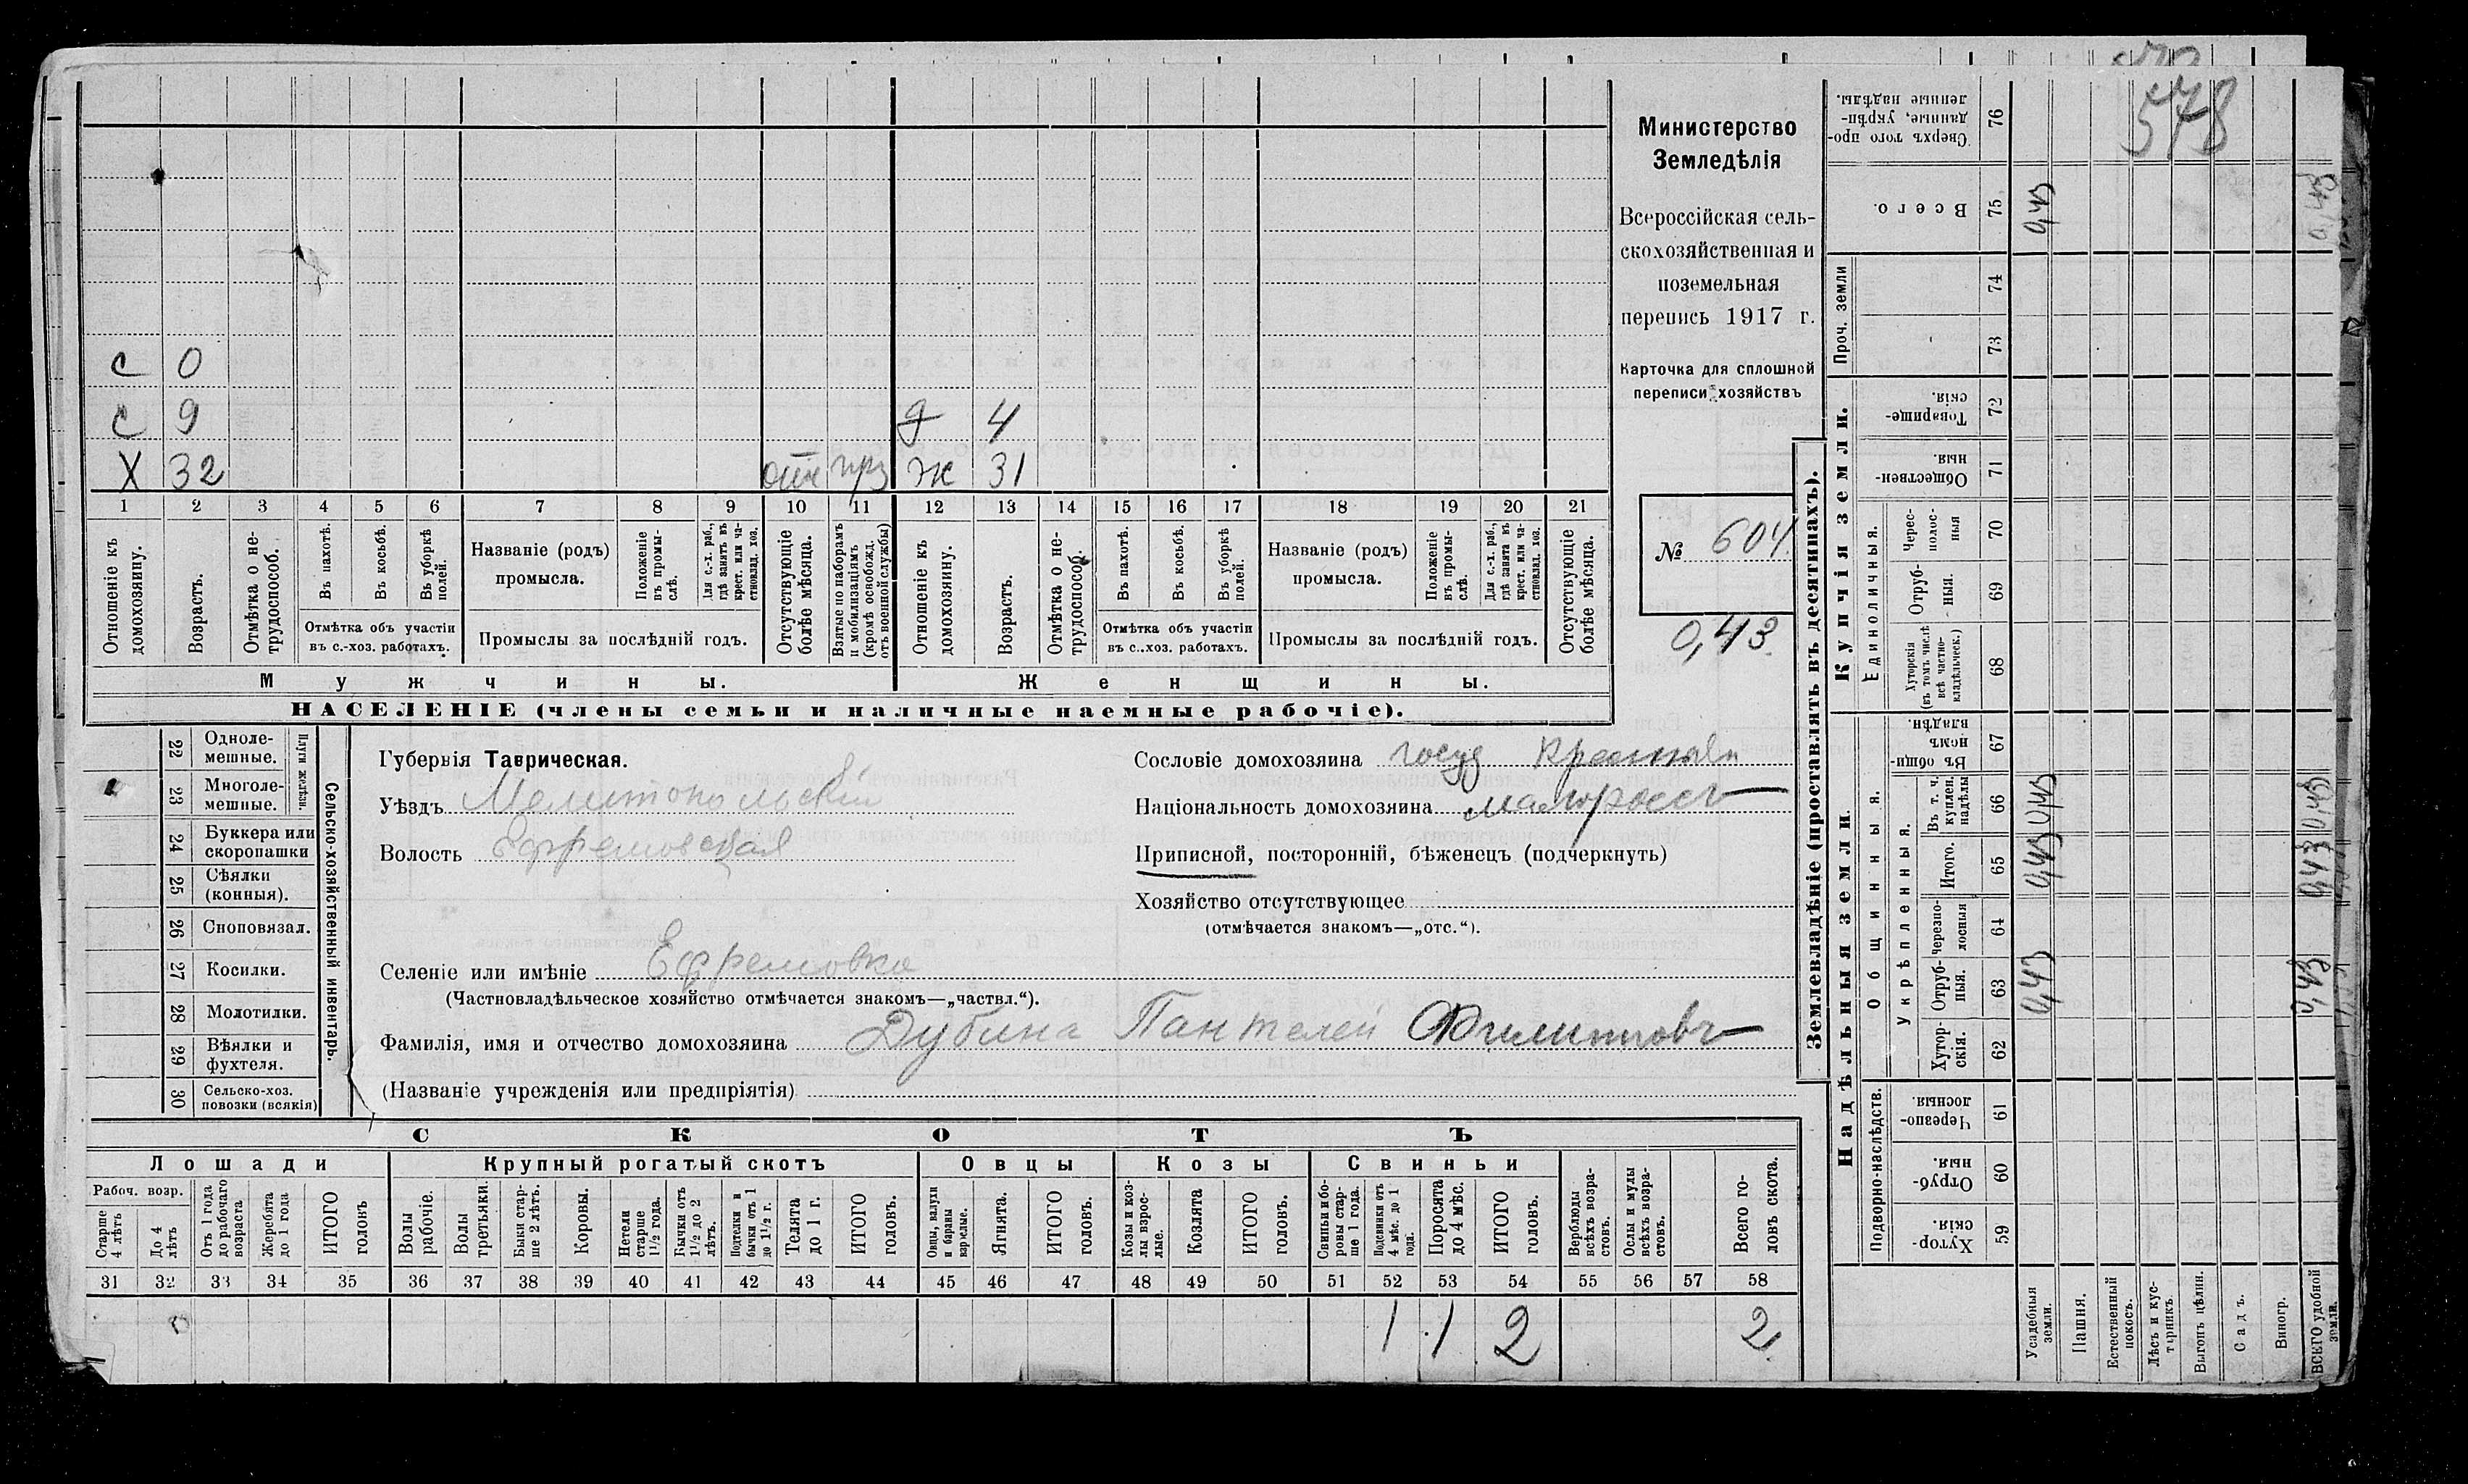 578
Министерство
Земледѣлія
Всероссійская сель-
скохозяйственная и
поземельная
перепись 1917 г.
Карточка для сплошной
переписи хозяйствъ
№ 604
0,43
с 0
с 9 д 4
Х 32 ж 31
1 2 3 4 5 6 7 8 9 10 11 12 13 14 15 16 17 18 19 20 21
Отношеніе къ домохозяину.
Возрастъ.
Отмѣтка о не-трудоспособ.
Въ пахотѣ.
Въ косьбѣ.
Въ уборкѣ полей.
Отмѣтка объ участіи
въ с.-хоз. работахъ.
Названіе (родъ)
промысла.
Положеніе въ промы-слѣ.
Для с.-х. раб., гдѣ занятъ въ крест. или ча-стновлад. хоз.
Промыслы за послѣдній годъ.
Отсутствующіе болѣе мѣсяца.
Взятые по наборамъ и мобилизаціямъ (кромѣ освобожд. отъ военной службы)
Отношеніе къ домохозяину.
Возрастъ.
Отмѣтка о не-трудоспособ.
Въ пахотѣ.
Въ косьбѣ.
Въ уборкѣ полей.
Отмѣтка объ участіи
въ с.-хоз. работахъ.
Названіе (родъ)
промысла.
Положеніе въ промы-слѣ.
Для с.-х. раб., гдѣ занята въ крест. или ча-стновлад. хоз.
Промыслы за послѣдній годъ.
Отсутствующіе болѣе мѣсяца.
Мужчины. Женщины.
НАСЕЛЕНІЕ (члены семьи и наличные наемные рабочіе).
22 Одноле-мешные.
23 Многоле-мешные.
Плуги желѣзн.
24 Буккера или скоропашки
25 Сѣялки (конныя).
26 Сноповязал.
27 Косилки.
28 Молотилки.
29 Вѣялки и фухтеля.
30 Сельско-хоз. повозки (всякія)
Сельско-хозяйственный инвентарь.
Губернія Таврическая.
Уѣздъ Мелитопольскій
Волость Ефремовская
Селеніе или имѣніе Ефремовка
(Частновладѣльческое хозяйство отмѣчается знакомъ—„частвл.“).
Фамилія, имя и отчество домохозяина Дубина Пантелей Филиповъ
(Названіе учрежденія или предпріятія)
Сословіе домохозяина госуд крестьян
Національность домохозяина малороссъ
Приписной, посторонній, бѣженецъ (подчеркнуть)
Хозяйство отсутствующее
(отмѣчается знакомъ—„отс.“).
СКОТЪ
Лошади Крупный рогатый скотъ Овцы Козы Свиньи
Рабоч. возр.
Старше 4 лѣтъ
До 4 лѣтъ
Отъ 1 года до рабочаго возраста
Жеребята до 1 года
ИТОГО головъ
Волы рабочіе.
Волы третьяки.
Быки стар-ше 2 лѣтъ.
Коровы.
Нетели старше 1½ года.
Бычки отъ 1½ до 2 лѣтъ.
Подтелки и бычки отъ 1 до 1½ г.
Телята до 1 г.
ИТОГО головъ.
Овцы, валухи и бараны взрослые.
Ягнята.
ИТОГО головъ.
Козы и коз-лы взрос-лые.
Козлята
ИТОГО головъ.
Свиньи и бо-ровы стар-ше 1 года.
Подсвинки отъ 4 мѣс. до 1 года.
Поросята до 4 мѣс.
ИТОГО головъ.
Верблюды всѣхъ возра-стовъ.
Ослы и мулы всѣхъ возра-стовъ.
Всего го-ловъ скота.
31 32 33 34 35 36 37 38 39 40 41 42 43 44 45 46 47 48 49 50 51 52 53 54 55 56 57 58
1 1 2 2
Землевладѣніе (проставлять въ десятинахъ).
Надѣльныя земли. Купчія земли. Проч. земли
Подворно-наслѣдств.
Общинныя.
Укрѣпленныя.
Единоличныя.
59 Хутор-скія.
60 Отруб-ныя.
61 Черезпо-лосныя.
62 Хутор-скія.
63 Отруб-ныя. 0,43 0,43
64 Черезпо-лосныя
65 Итого. 0,43 0,43
66 Въ т. ч. куплен. надѣлы 0,43 0,43
67 Въ общи-номъ владѣн.
68 Хуторскія (въ томъ числѣ всѣ частно-владѣльческ.)
69 Отруб-ныя.
70 Черес-полос-ныя
71 Обществен-ныя.
72 Товарище-скія.
73
74
75 Всего. 0,43 0,43
76 Сверхъ того про-данные, укрѣп-ленные надѣлы.
Усадебныя земли.
Пашня.
Естественный покосъ.
Лѣсъ и кус-тарникъ.
Выгонъ цѣлин.
Садъ.
Виногр.
ВСЕГО удобной земли.